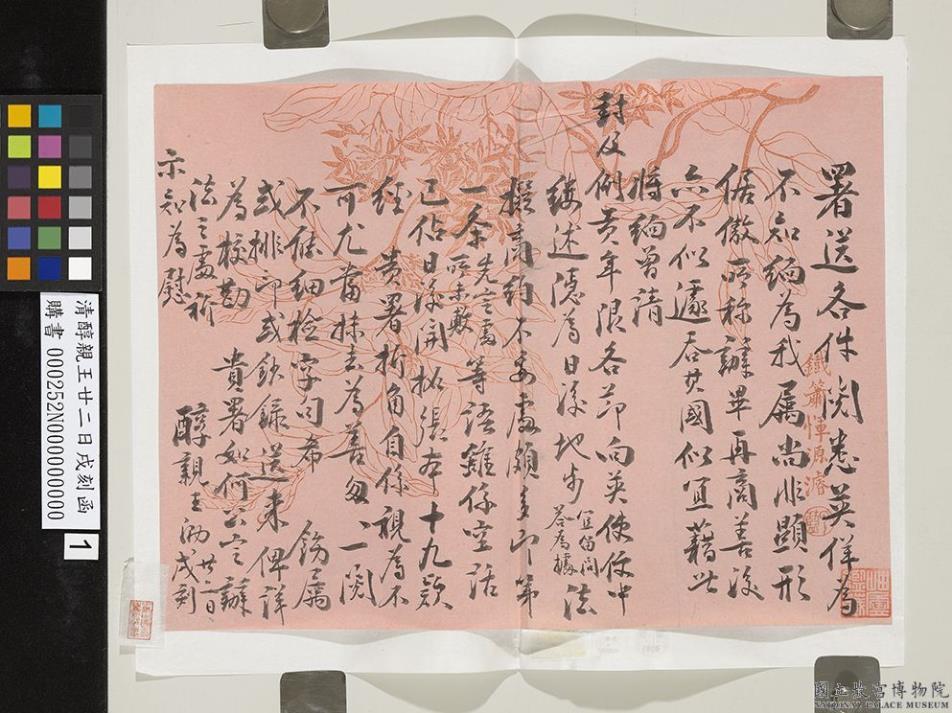 署送各件閱悉英佯為
不知緬為我屬尚非顯形
倨傲所称辦畢再商善後
亦不似遽吞其國似宜藉此
將緬曾請
封及例貢年限各節向英使使中
縷述隱為日後地步宜留問答為據法
擬商約不妥處頗多即第
一条先言處所未敷等語雖係空话
已佔日後開拓張本十九款
經貴署折角自係視為不
可尤當抹去為善匆匆一閱
不能細檢字句希飭屬
或排印或鈔錄送来俾詳
為校勘貴署如何公言辦
法之處祈
示知為慰
醇親王泐廿二日戌刻
鐵簫
清醇親王廿二日戌刻函
購書 000252N000000000
1
國立故宮博物院
NATIONAL PALACE MUSEUM